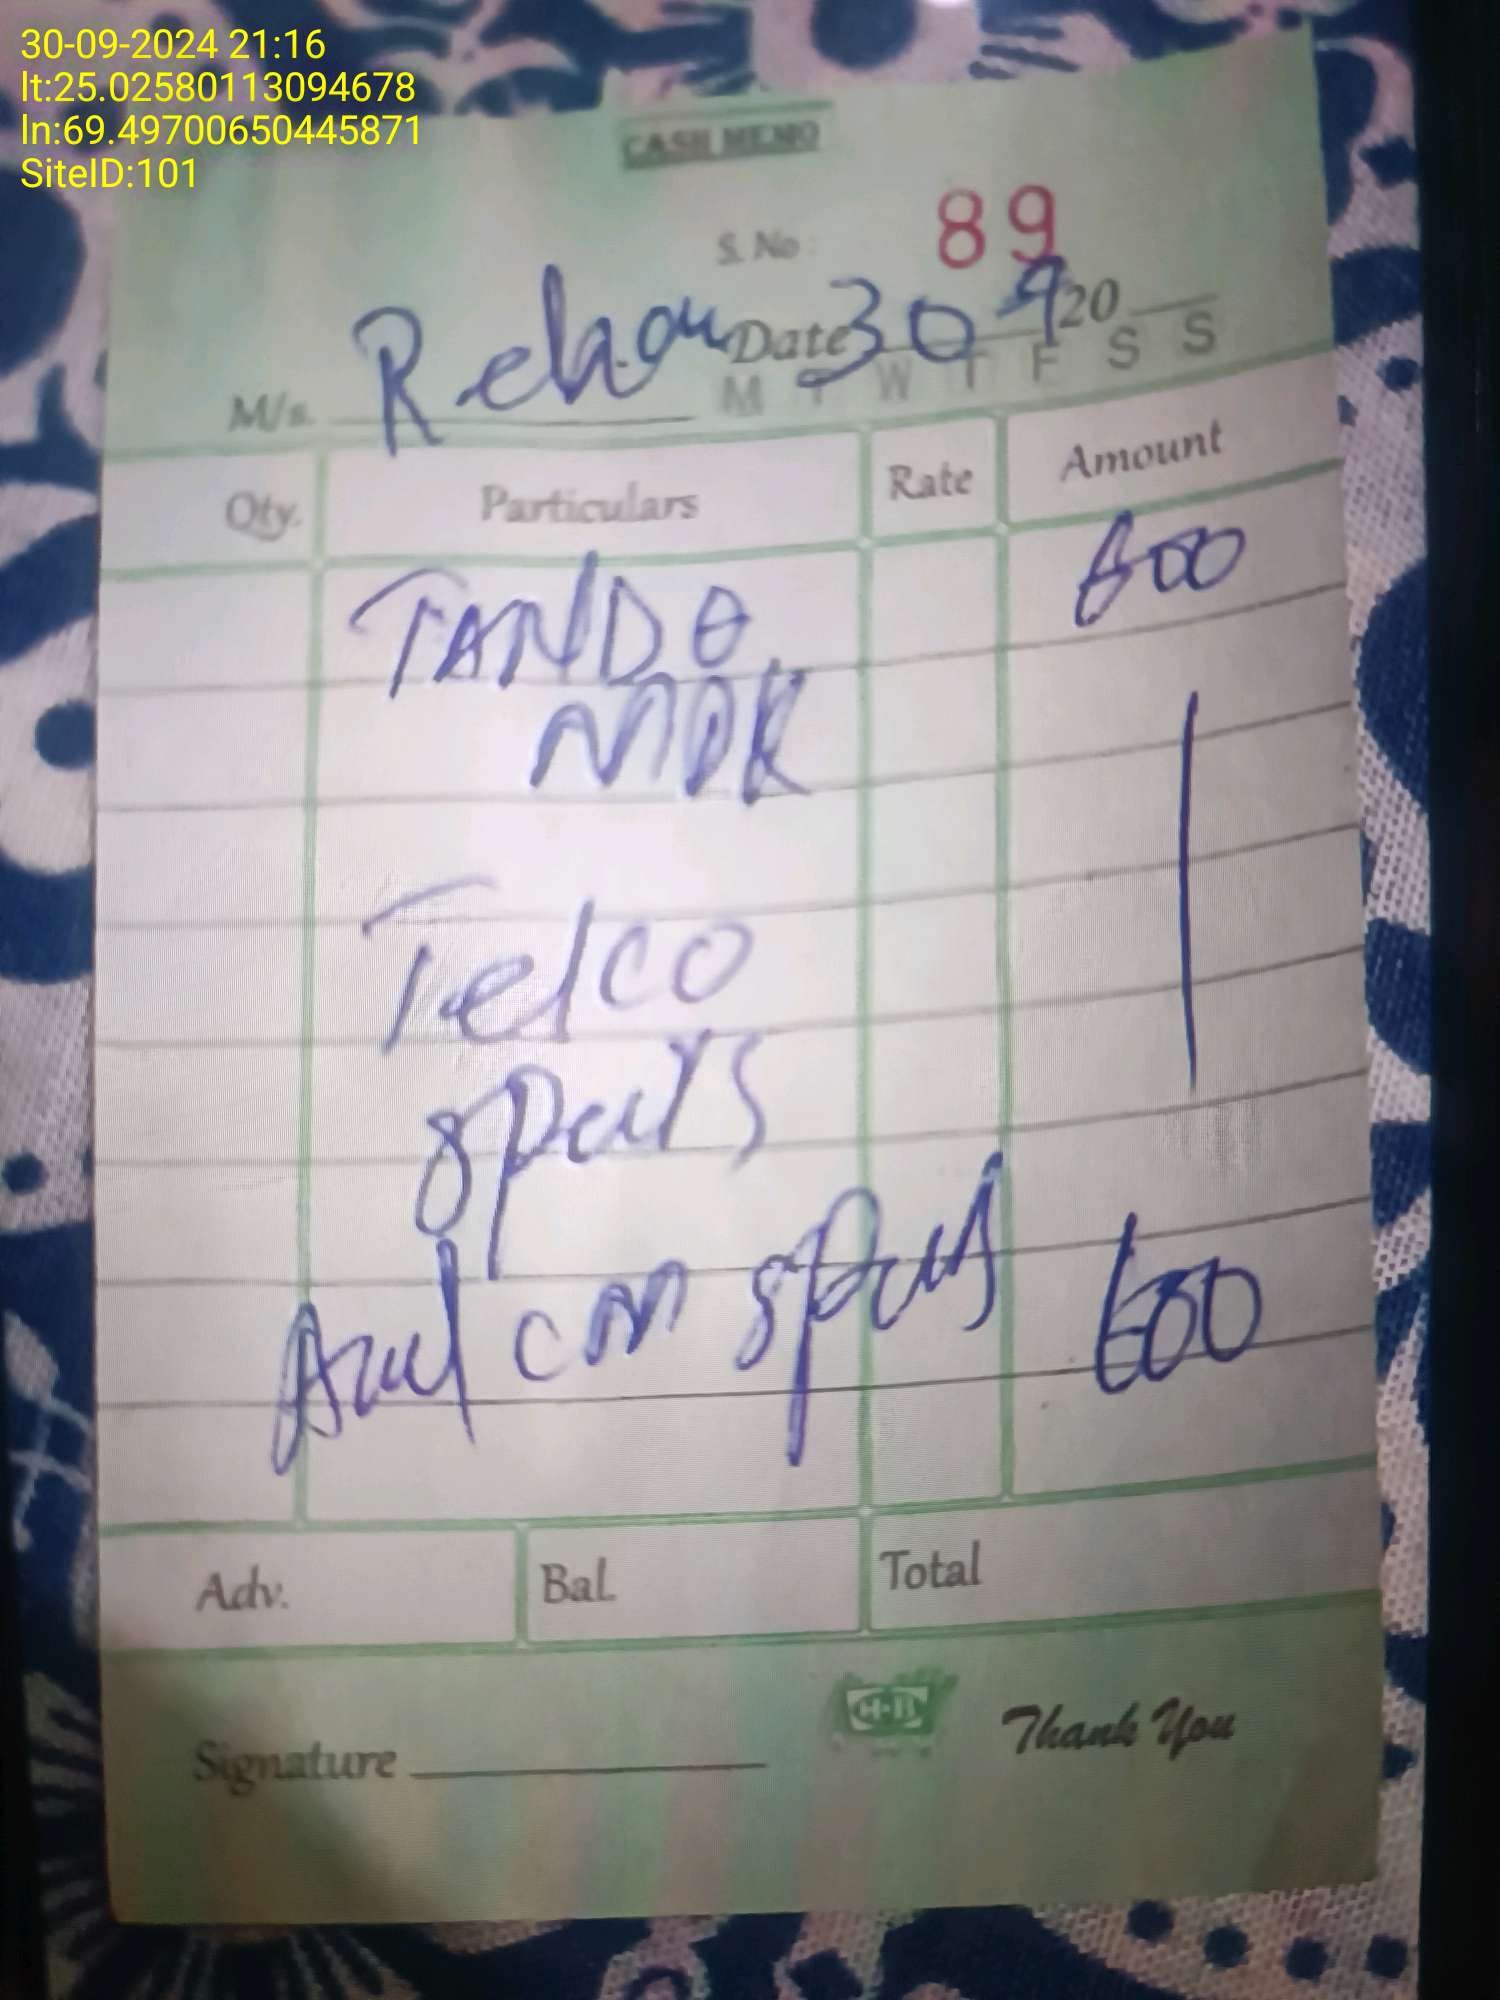 30-09-2024 21:16
lt:25.02580113094678
ln:69.49700650445871
SiteID:101
CASH MEMO
S. No: 89
Date 30 9 20
M/s. Rehan
M T W T F S S
Qty. Particulars Rate Amount
TANDO 600
Telco
CM 600
Adv. Bal. Total
Signature
H-B
Thank You